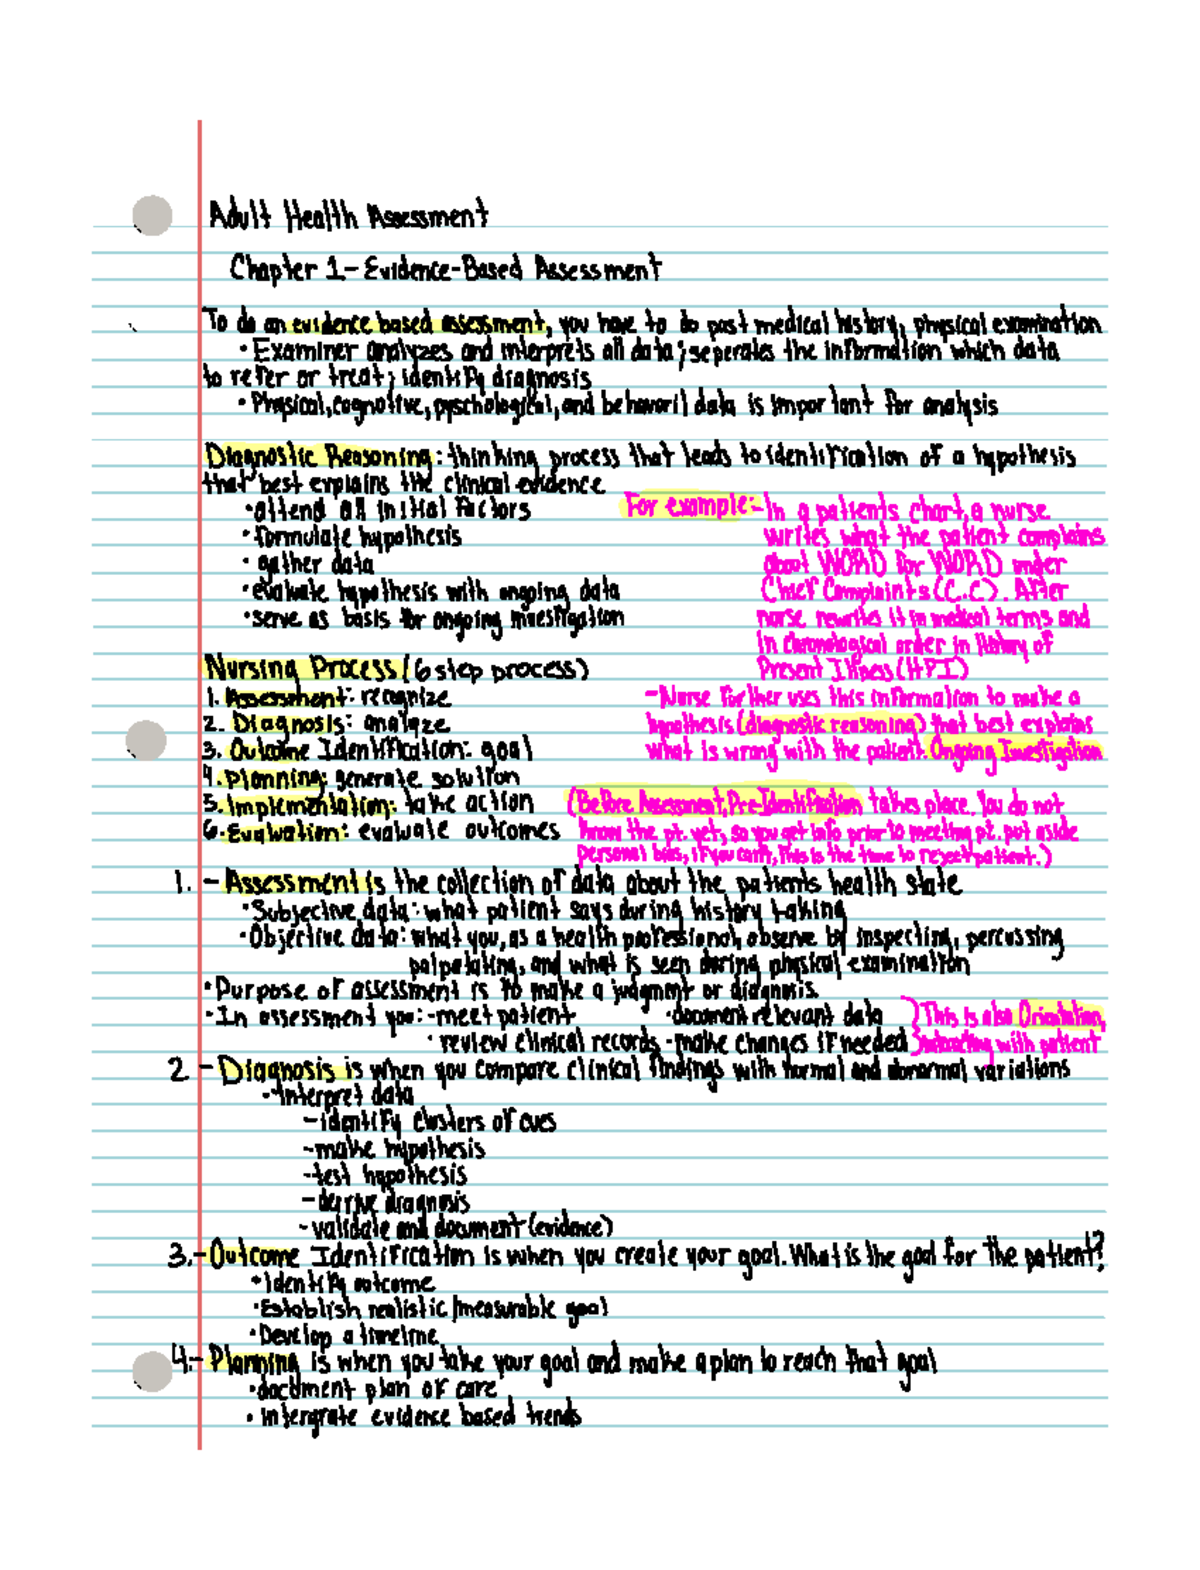 Adult Health Assessment
Chapter 1 - Evidence-Based Assessment
To do an evidence based assessment, you have to do past medical history, physical examination
• Examiner analyzes and interprets all data; seperates the information which data
to refer or treat; identify diagnosis
• Physical, cognotive, pyschological, and behavoril data is important for analysis
Diagnostic Reasoning: thinking process that leads to identification of a hypothesis
that best explains the clinical evidence
• attend all initial factors
• formulate hypothesis
• gather data
• evaluate hypothesis with ongoing data
• serve as basis for ongoing investigation
For example: - In a patients chart, a nurse
writes what the patient complains
about WORD for WORD under
Chief Complaints (C.C). After
nurse rewrites it in medical terms and
in chronological order in History of
Present Illness (HPI)
- Nurse further uses this information to make a
hypothesis (diagnostic reasoning) that best explains
what is wrong with the patient. Ongoing Investigation
Nursing Process (6 step process)
1. Assessment: recognize
2. Diagnosis: analyze
3. Outcome Identification: goal
4. Planning: generate solution
5. Implementation: take action
6. Evaluation: evaluate outcomes
(Before Assessment, Pre-Identification takes place. You do not
know the pt. yet, so you get info prior to meeting pt. put aside
personal bias, if you can't, this is the time to reject patient.)
1. - Assessment is the collection of data about the patients health state
• Subjective data: what patient says during history taking
• Objective data: what you, as a health professional, observe by inspecting, percussing
palpatating, and what is seen during physical examination
• Purpose of assessment is to make a judgment or diagnosis.
• In assessment you: - meet patient • document relevant data } This is also Orientation,
• review clinical records - make changes if needed } interacting with patient
2 - Diagnosis is when you compare clinical findings with normal and abnormal variations
- Interpret data
- identify clusters of cues
- make hypothesis
- test hypothesis
- derive diagnosis
- validate and document (evidence)
3. - Outcome Identification is when you create your goal. What is the goal for the patient?
• Identify outcome
• Establish realistic/measurable goal
• Develop a timeline
4. - Planning is when you take your goal and make a plan to reach that goal
• document plan of care
• intergrate evidence based trends